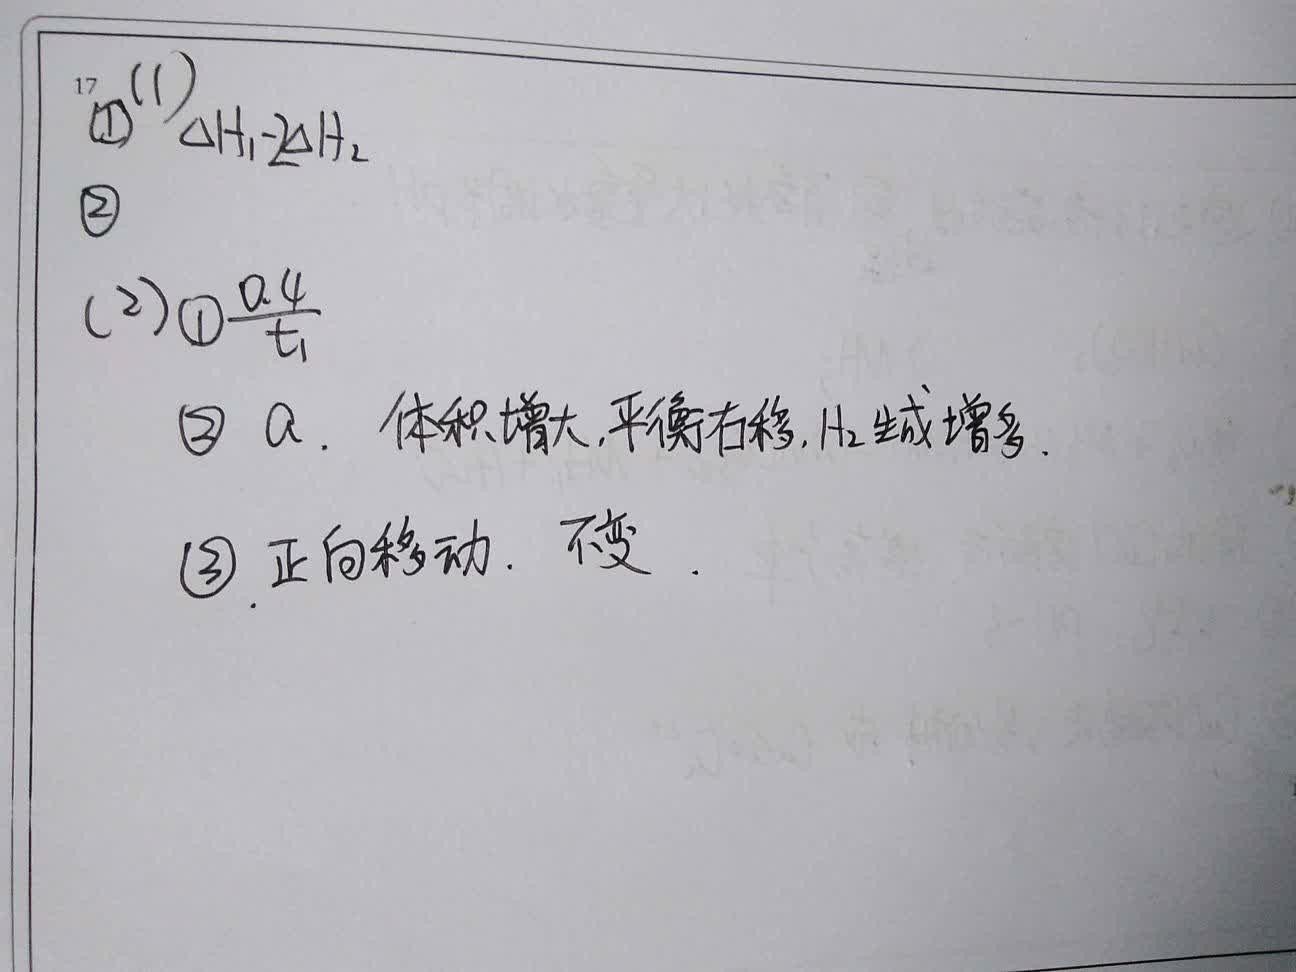 17
(1)
① ΔH₁-2ΔH₂
②
(2) ① 0.4/t₁
② a. 体积增大,平衡右移,H₂生成增多.
③.正向移动. 不变.